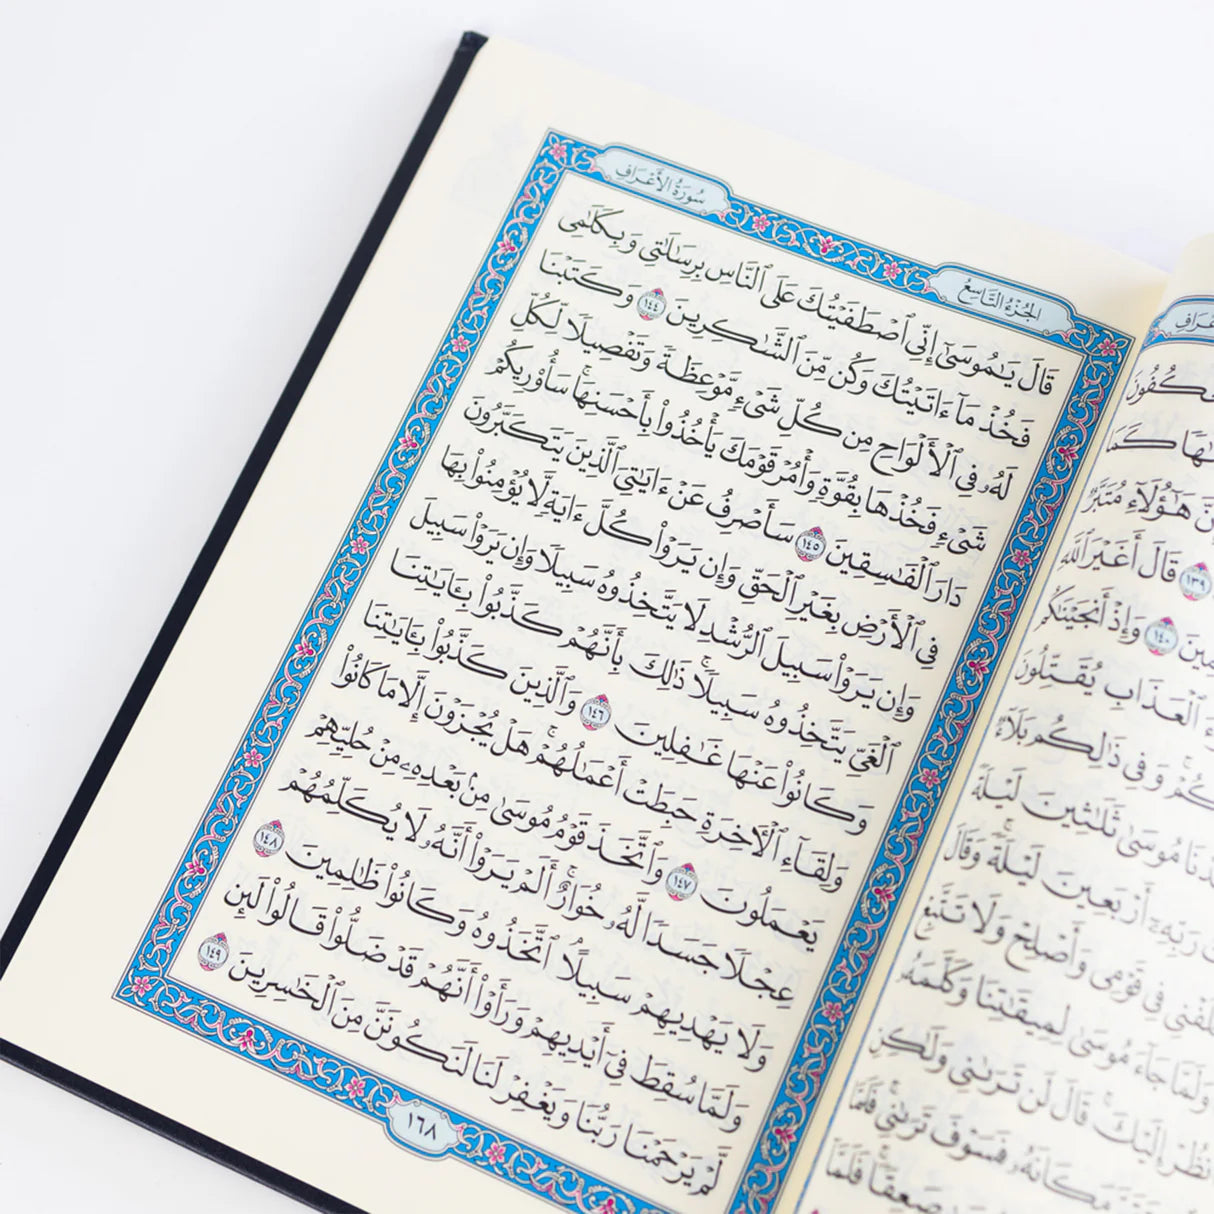 كَمَا
هَٰٓؤُلَآءِ مُتَبَّرٌ
١٣٩ قَالَ أَغَيْرَ ٱللَّهِ
١٤٠ وَإِذْ أَنجَيْنَٰكُم
ٱلْعَذَابِ يُقَتِّلُونَ
وَفِى ذَٰلِكُم بَلَآءٌ
مُوسَىٰ ثَلَٰثِينَ لَيْلَةً
رَبِّهِۦٓ أَرْبَعِينَ لَيْلَةً ۚ وَقَالَ
فِى قَوْمِى وَأَصْلِحْ وَلَا تَتَّبِعْ
وَلَمَّا جَآءَ مُوسَىٰ لِمِيقَٰتِنَا وَكَلَّمَهُۥ
إِلَيْكَ ۚ قَالَ لَن تَرَىٰنِى وَلَٰكِنِ
مَكَانَهُۥ فَسَوْفَ تَرَىٰنِى ۚ فَلَمَّا
صَعِقًا ۚ فَلَمَّآ
الجُزْءُ التَّاسِعُ
سُورَةُ الأَعْرَافِ
قَالَ يَٰمُوسَىٰٓ إِنِّى ٱصْطَفَيْتُكَ عَلَى ٱلنَّاسِ بِرِسَٰلَٰتِى وَبِكَلَٰمِى
فَخُذْ مَآ ءَاتَيْتُكَ وَكُن مِّنَ ٱلشَّٰكِرِينَ ١٤٤ وَكَتَبْنَا
لَهُۥ فِى ٱلْأَلْوَاحِ مِن كُلِّ شَىْءٍ مَّوْعِظَةً وَتَفْصِيلًا لِّكُلِّ
شَىْءٍ فَخُذْهَا بِقُوَّةٍ وَأْمُرْ قَوْمَكَ يَأْخُذُوا۟ بِأَحْسَنِهَا ۚ سَأُو۟رِيكُمْ
دَارَ ٱلْفَٰسِقِينَ ١٤٥ سَأَصْرِفُ عَنْ ءَايَٰتِىَ ٱلَّذِينَ يَتَكَبَّرُونَ
فِى ٱلْأَرْضِ بِغَيْرِ ٱلْحَقِّ وَإِن يَرَوْا۟ كُلَّ ءَايَةٍ لَّا يُؤْمِنُوا۟ بِهَا
وَإِن يَرَوْا۟ سَبِيلَ ٱلرُّشْدِ لَا يَتَّخِذُوهُ سَبِيلًا وَإِن يَرَوْا۟ سَبِيلَ
ٱلْغَىِّ يَتَّخِذُوهُ سَبِيلًا ۚ ذَٰلِكَ بِأَنَّهُمْ كَذَّبُوا۟ بِـَٔايَٰتِنَا
وَكَانُوا۟ عَنْهَا غَٰفِلِينَ ١٤٦ وَٱلَّذِينَ كَذَّبُوا۟ بِـَٔايَٰتِنَا
وَلِقَآءِ ٱلْـَٔاخِرَةِ حَبِطَتْ أَعْمَٰلُهُمْ ۚ هَلْ يُجْزَوْنَ إِلَّا مَا كَانُوا۟
يَعْمَلُونَ ١٤٧ وَٱتَّخَذَ قَوْمُ مُوسَىٰ مِنۢ بَعْدِهِۦ مِنْ حُلِيِّهِمْ
عِجْلًا جَسَدًا لَّهُۥ خُوَارٌ ۚ أَلَمْ يَرَوْا۟ أَنَّهُۥ لَا يُكَلِّمُهُمْ
وَلَا يَهْدِيهِمْ سَبِيلًا ٱتَّخَذُوهُ وَكَانُوا۟ ظَٰلِمِينَ ١٤٨
وَلَمَّا سُقِطَ فِىٓ أَيْدِيهِمْ وَرَأَوْا۟ أَنَّهُمْ قَدْ ضَلُّوا۟ قَالُوا۟ لَئِن
لَّمْ يَرْحَمْنَا رَبُّنَا وَيَغْفِرْ لَنَا لَنَكُونَنَّ مِنَ ٱلْخَٰسِرِينَ ١٤٩
١٦٨